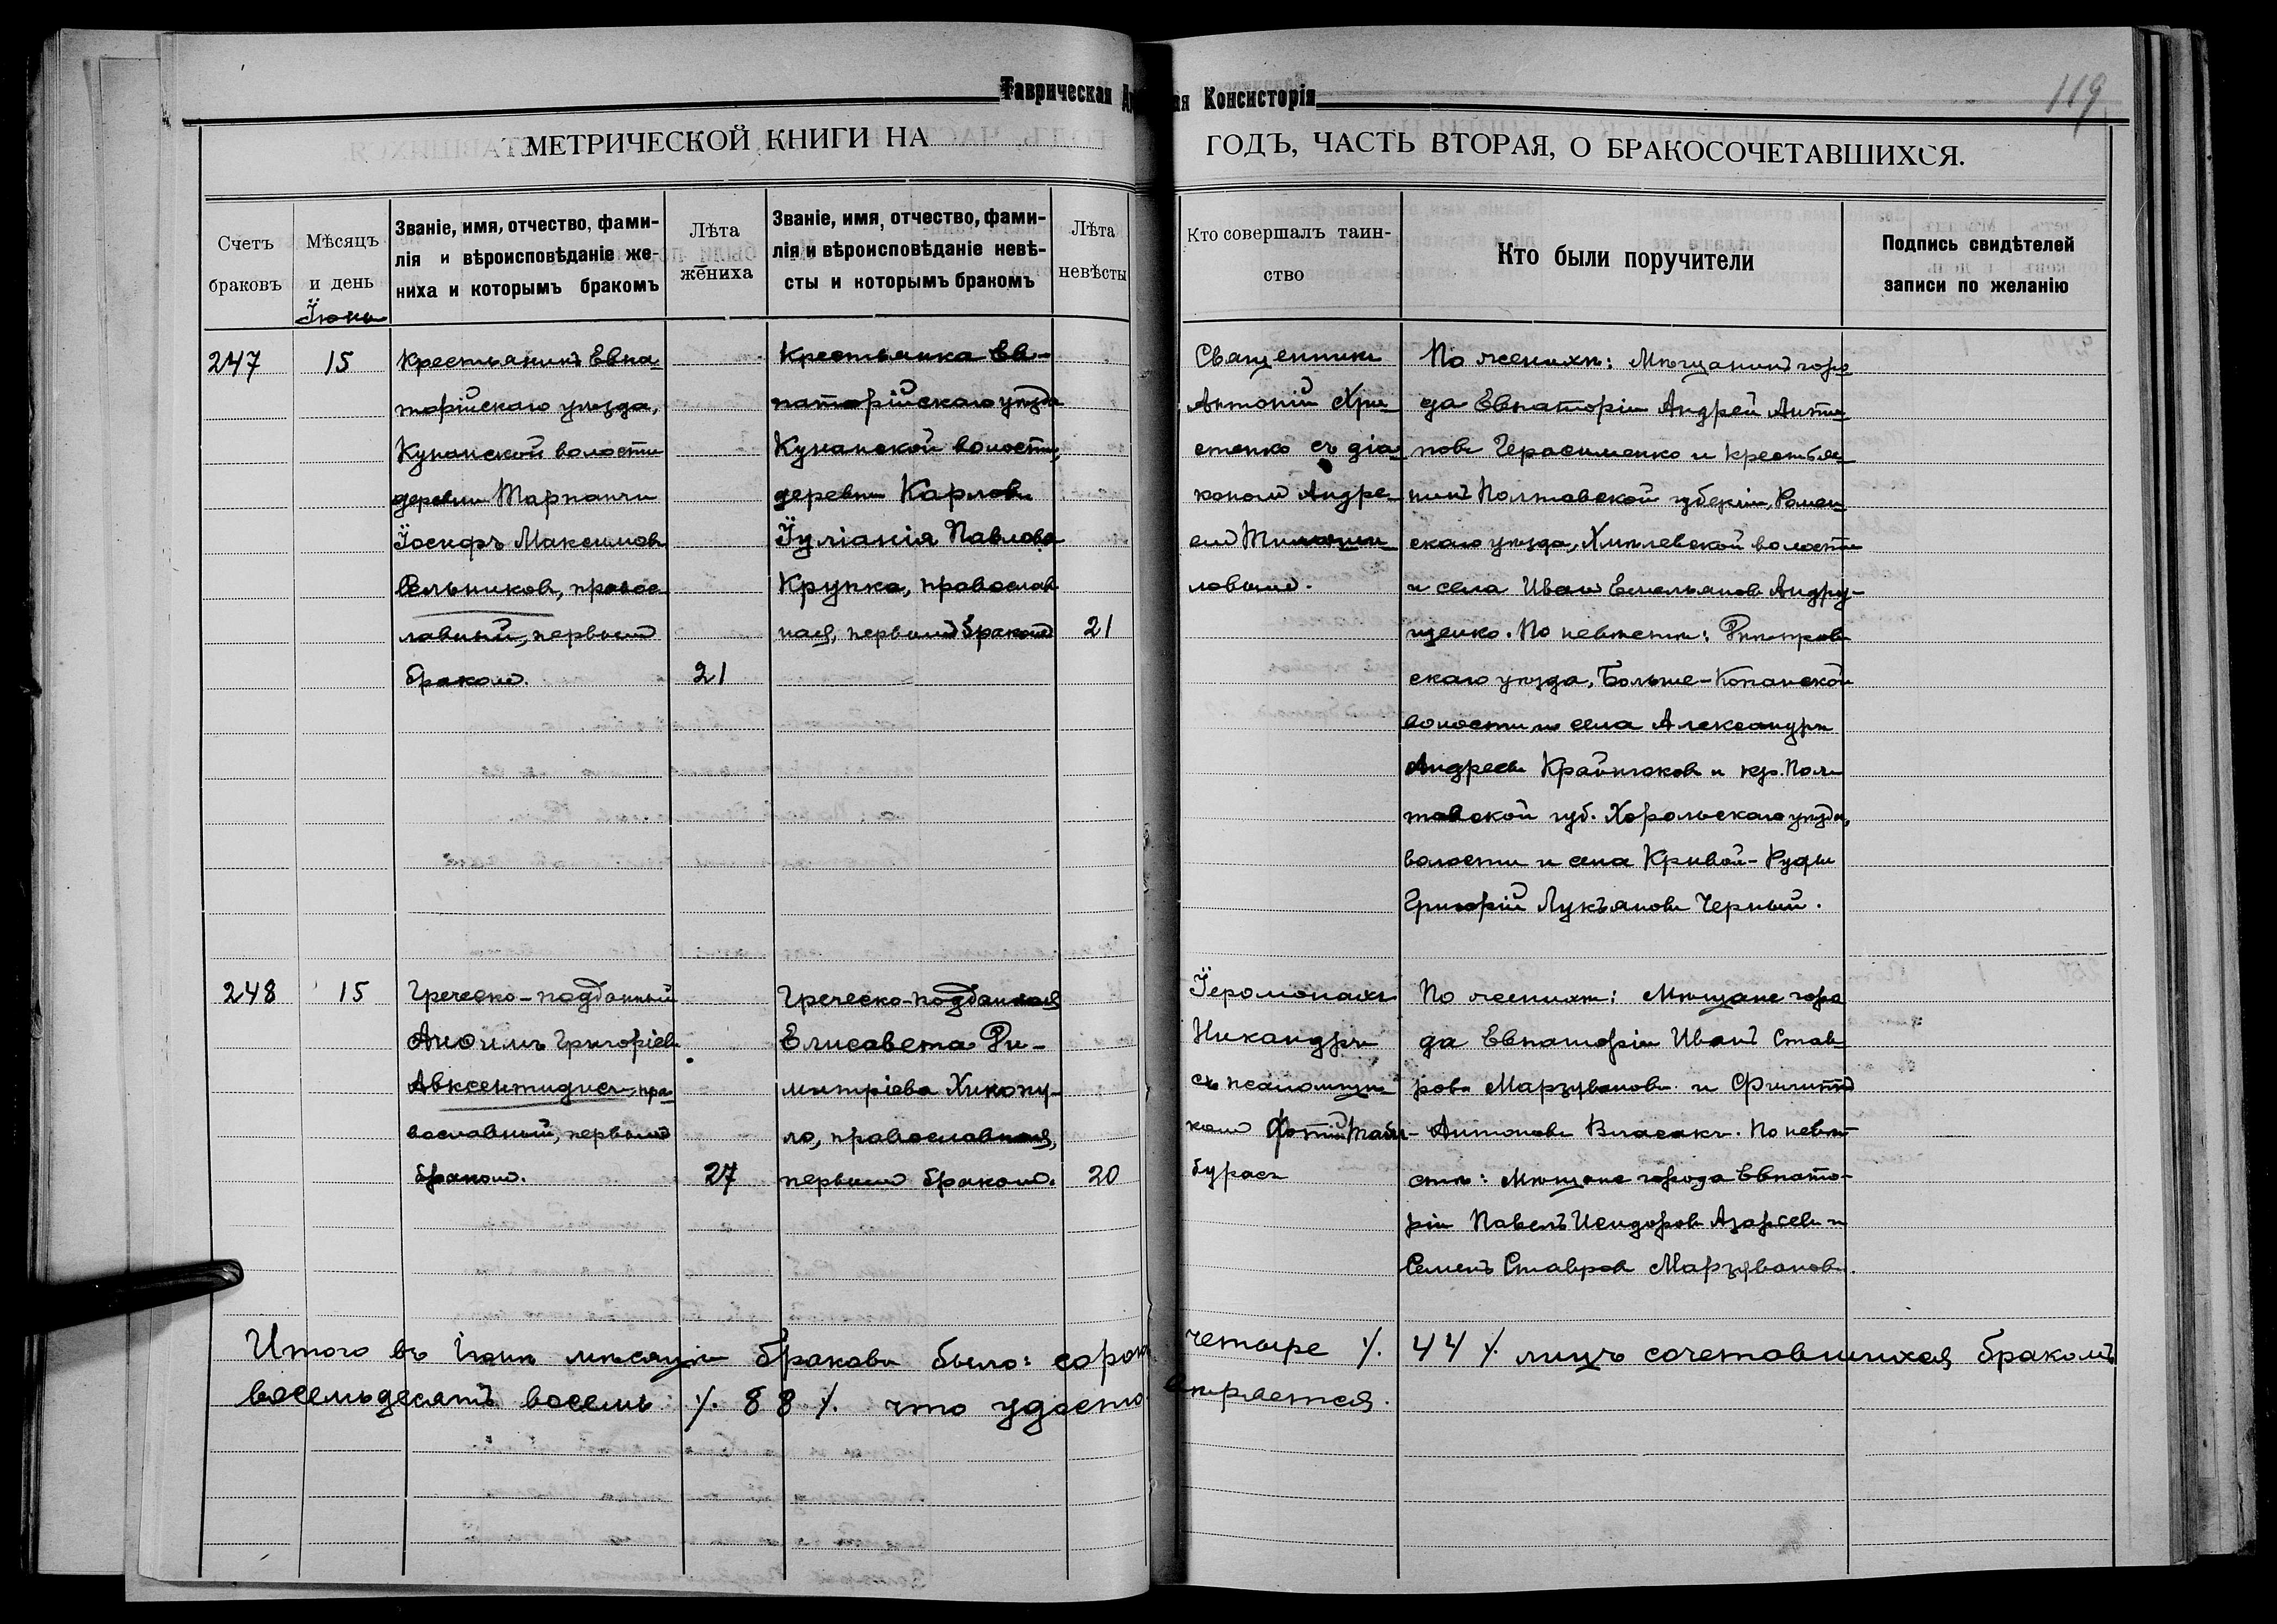 Таврическая
ая Консисторія
119
МЕТРИЧЕСКОЙ КНИГИ НА
ГОДЪ, ЧАСТЬ ВТОРАЯ, О БРАКОСОЧЕТАВШИХСЯ.
Счетъ
браковъ
Мѣсяцъ
и день
Званіе, имя, отчество, фами-
лія и вѣроисповѣданіе же-
ниха и которымъ бракомъ
Лѣта
жениха
Званіе, имя, отчество, фами-
лія и вѣроисповѣданіе невѣ-
сты и которымъ бракомъ
Лѣта
невѣсты
Кто совершалъ таин-
ство
Кто были поручители
Подпись свидѣтелей
записи по желанію
Іюнь
247
15
Крестьянинъ Евпа-
торійскаго уѣзда,
Кунанской волости
деревни Тарпанчи
Іосифъ Максимовъ
Вельниковъ, правос-
лавный, первымъ
бракомъ.
21
Крестьянка Ев-
паторійскаго уѣзда
Кунанской волости,
деревни Карловъ
Іуліанія Павлова
Крупко, православ
ная, первымъ бракомъ
21
Священникъ
Антоній Хри-
стенко съ діа-
кономъ Андре-
емъ
ловымъ.
По женихѣ: Мѣщанинъ горо-
да Евпаторіи Андрей Анти-
повъ Герасименко и крестья-
нинъ Полтавской губерніи, Ромен-
скаго уѣзда, Хмѣлевской волости
и села Иванъ Емельяновъ Андру-
щенко. По невѣстѣ: Днѣпров-
скаго уѣзда, Больше-Копанской
волости и села Александръ
Андреевъ Крайнюковъ и кр. Пол-
тавской губ. Хорольскаго уѣзда,
волости и села Кривой-Руды
Григорій Лукьяновъ Черный.
248
15
Греческо-подданный
Анѳимъ Григоріевъ
Авксентидисъ, пра-
вославный, первымъ
бракомъ.
27
Греческо-подданная
Елисавета Ди-
митріева Хикопу-
ло, православная,
первымъ бракомъ.
20
Іеромонахъ
Никандръ
съ псаломщи-
комъ Фотій Таба-
бурасъ
По женихѣ: Мѣщане горо
да Евпаторіи Иванъ Став-
ровъ Марзувановъ и Филиппъ
Антоновъ Власакъ. По невѣ-
стѣ: Мѣщане города Евпато-
ріи Павелъ Исидоровъ Азарьевъ и
Семенъ Ставровъ Марзувановъ.
Итого въ Іюнѣ мѣсяцѣ браковъ было: сорокъ четыре ./. 44 ./. лицъ сочетавшихся бракомъ
восемьдесятъ восемь ./. 88 ./. что удостовѣряется.